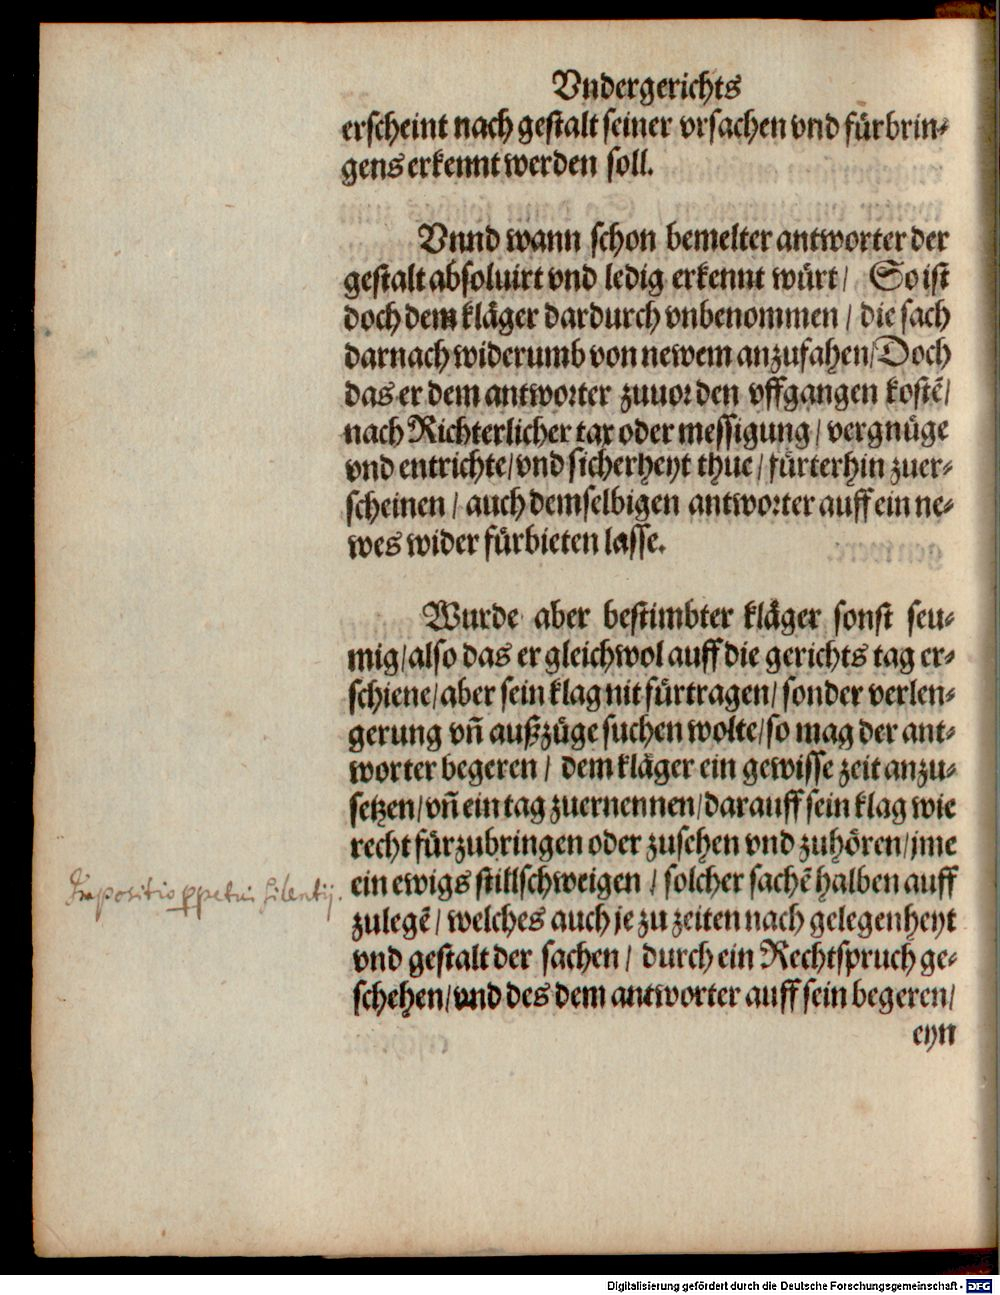 Vndergerichts
erscheint nach gestalt seiner vrsachen vnd fürbrin-
gens erkennt werden soll.
Vnnd wann schon bemelter antworter der
gestalt absoluirt vnd ledig erkennt würt/ So ist
doch dem kläger dardurch vnbenommen / die sach
darnach widerumb von newem anzufahen/Doch
das er dem antworter zuuor den vffgangen kostē/
nach Richterlicher tax oder messigung / vergnüge
vnd entrichte/vnd sicherheyt thue / fürterhin zuer-
scheinen / auch demselbigen antworter auff ein ne-
wes wider fürbieten lasse.
Wurde aber bestimbter kläger sonst seu-
mig/also das er gleichwol auff die gerichts tag er-
schiene/aber sein klag nit fürtragen/ sonder verlen-
gerung vñ außzüge suchen wolte/so mag der ant-
worter begeren / dem kläger ein gewisse zeit anzu-
setzen/vñ ein tag zuernennen/darauff sein klag wie
recht fürzubringen oder zusehen vnd zuhören/jme
ein ewigs stillschweigen / solcher sachē halben auff
zulegē / welches auch je zu zeiten nach gelegenheyt
vnd gestalt der sachen / durch ein Rechtspruch ge-
schehen/vnd des dem antworter auff sein begeren/
eyn
Impositio ppetui silentij.
Digitalisierung gefördert durch die Deutsche Forschungsgemeinschaft - DFG